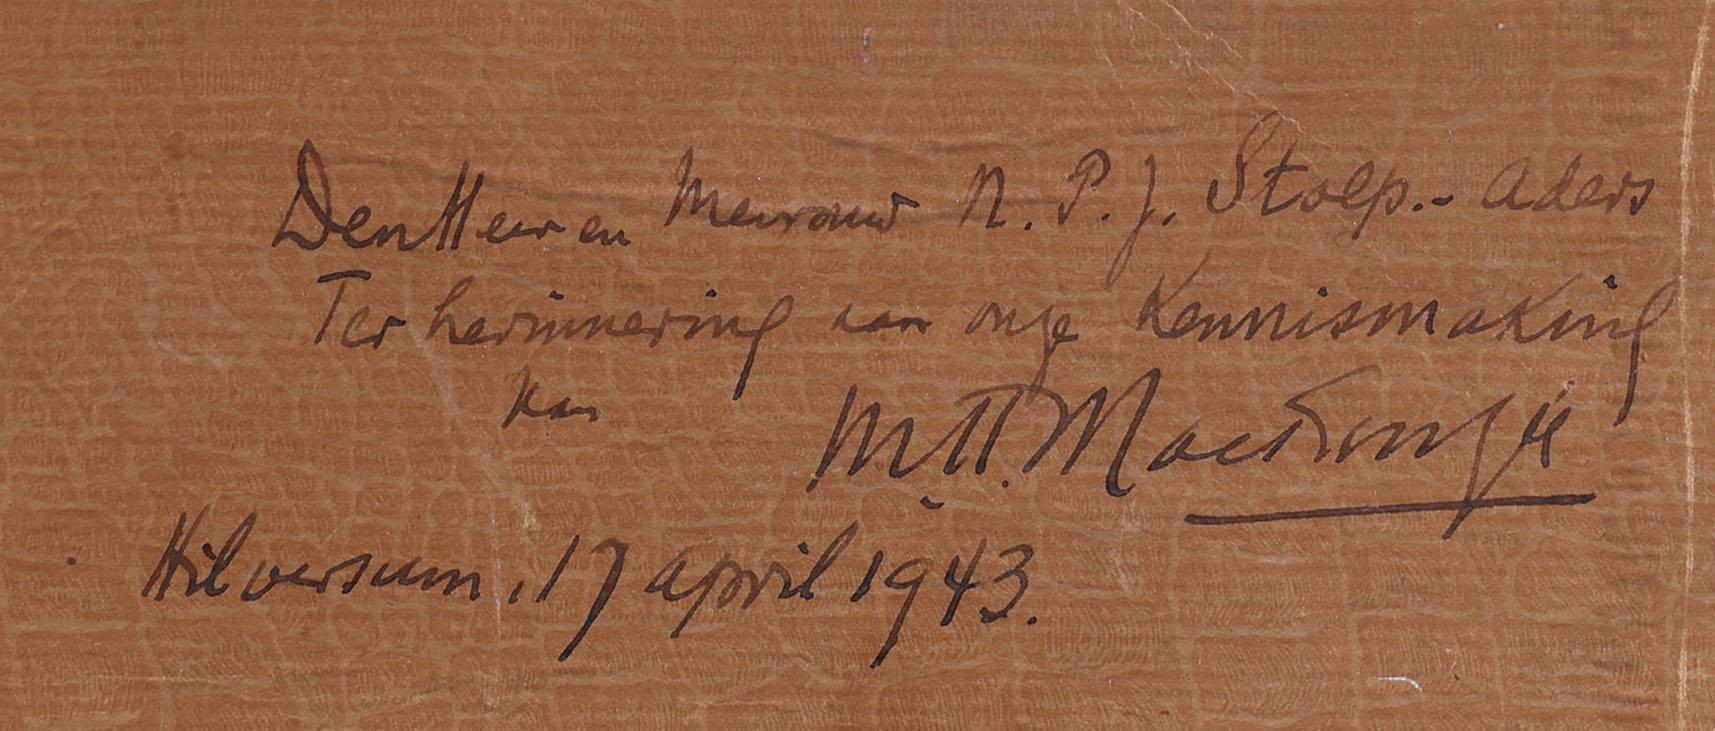 Den Heer en Mevrouw N. P. J. Stolp.- Aders
Ter herinnering aan onze Kennismaking
van M H. Mackenzie
Hilversum, 17 april 1943.